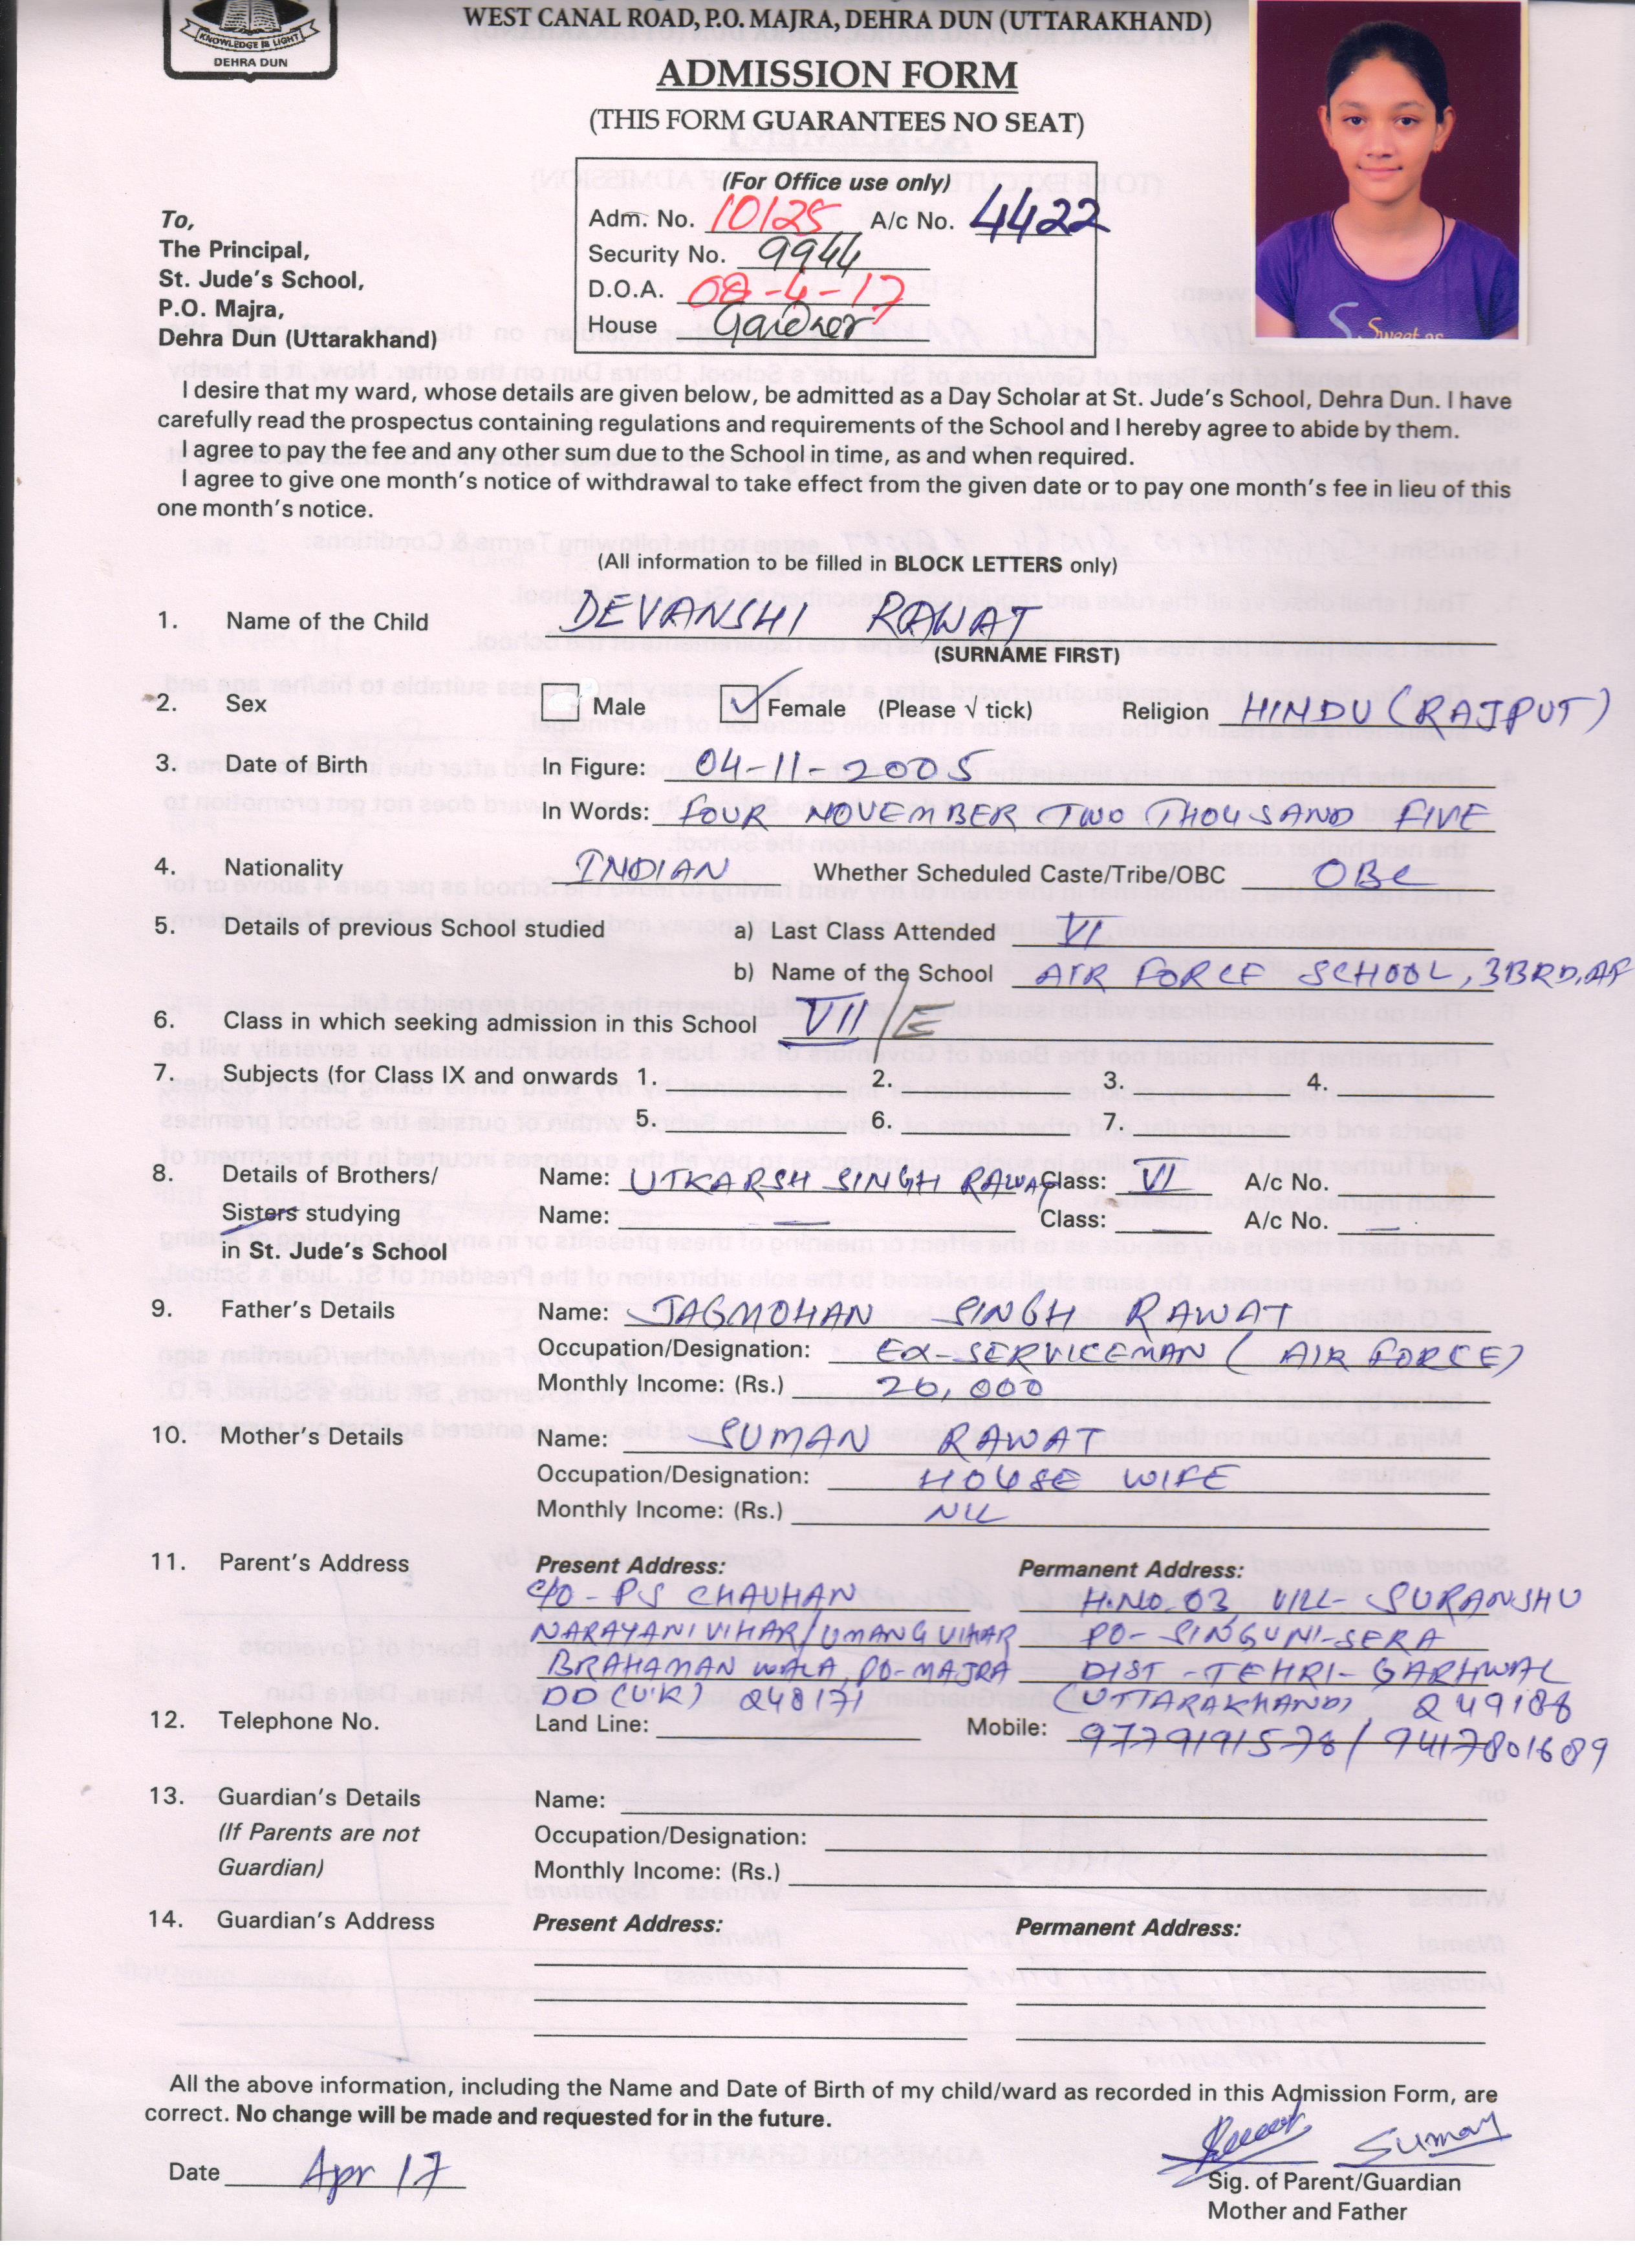 KNOWLEDGE IS LIGHT
DEHRA DUN
WEST CANAL ROAD, P.O. MAJRA, DEHRA DUN (UTTARAKHAND)
ADMISSION FORM
(THIS FORM GUARANTEES NO SEAT)
(For Office use only)
Adm. No. 10125 A/c No. 4422
Security No. 9944
D.O.A. 08-4-17
House Gardner
To,
The Principal,
St. Jude's School,
P.O. Majra,
Dehra Dun (Uttarakhand)
Sweet as
I desire that my ward, whose details are given below, be admitted as a Day Scholar at St. Jude's School, Dehra Dun. I have
carefully read the prospectus containing regulations and requirements of the School and I hereby agree to abide by them.
I agree to pay the fee and any other sum due to the School in time, as and when required.
I agree to give one month's notice of withdrawal to take effect from the given date or to pay one month's fee in lieu of this
one month's notice.
(All information to be filled in BLOCK LETTERS only)
1. Name of the Child DEVANSHI RAWAT
(SURNAME FIRST)
2. Sex Male Female (Please √ tick) Religion HINDU (RAJPUT)
3. Date of Birth In Figure: 04-11-2005
In Words: FOUR NOVEMBER TWO THOUSAND FIVE
4. Nationality INDIAN Whether Scheduled Caste/Tribe/OBC OBC
5. Details of previous School studied a) Last Class Attended VI
b) Name of the School AIR FORCE SCHOOL, 3BRD, AF
6. Class in which seeking admission in this School VII/E
7. Subjects (for Class IX and onwards 1. 2. 3. 4.
5. 6. 7.
8. Details of Brothers/ Name: UTKARSH SINGH RAWAT Class: VI A/c No.
Sisters studying Name: — Class: — A/c No. —
in St. Jude's School
9. Father's Details Name: JAGMOHAN SINGH RAWAT
Occupation/Designation: EX-SERVICEMAN (AIR FORCE)
Monthly Income: (Rs.) 20,000
10. Mother's Details Name: SUMAN RAWAT
Occupation/Designation: HOUSE WIFE
Monthly Income: (Rs.) NIL
11. Parent's Address Present Address: Permanent Address:
C/O - PS CHAUHAN H.NO. 03, VILL- SURANSHU
NARAYANI VIHAR/UMANG VIHAR PO- SINGUNI-SERA
BRAHAMAN WALA, PO-MAJRA DIST - TEHRI- GARHWAL
DD (U.K) 248171 (UTTARAKHAND) 249188
12. Telephone No. Land Line: Mobile: 9779191578/9417801689
13. Guardian's Details Name:
(If Parents are not Occupation/Designation:
Guardian) Monthly Income: (Rs.)
14. Guardian's Address Present Address: Permanent Address:
All the above information, including the Name and Date of Birth of my child/ward as recorded in this Admission Form, are
correct. No change will be made and requested for in the future.
Date Apr 17 Suman
Sig. of Parent/Guardian
Mother and Father